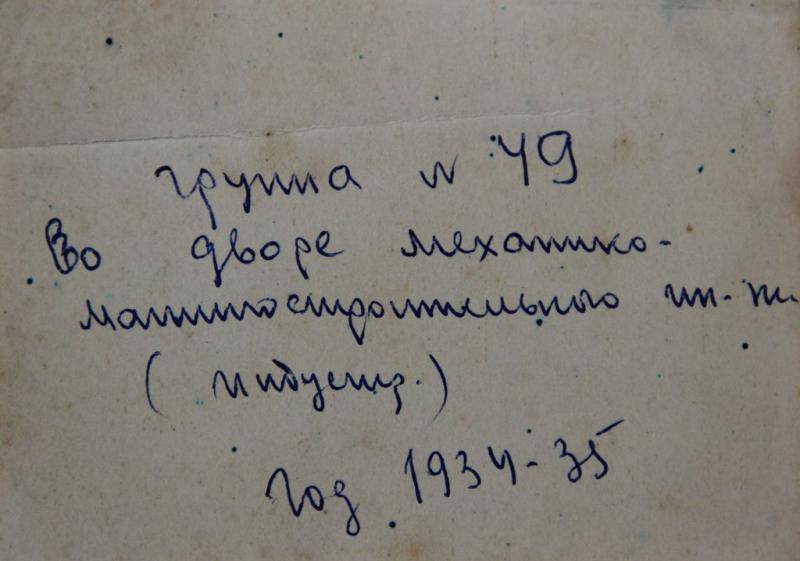 группа N 49
Во дворе механико-
машиностроительного ин-та.
(индустр.)
Год 1934-35